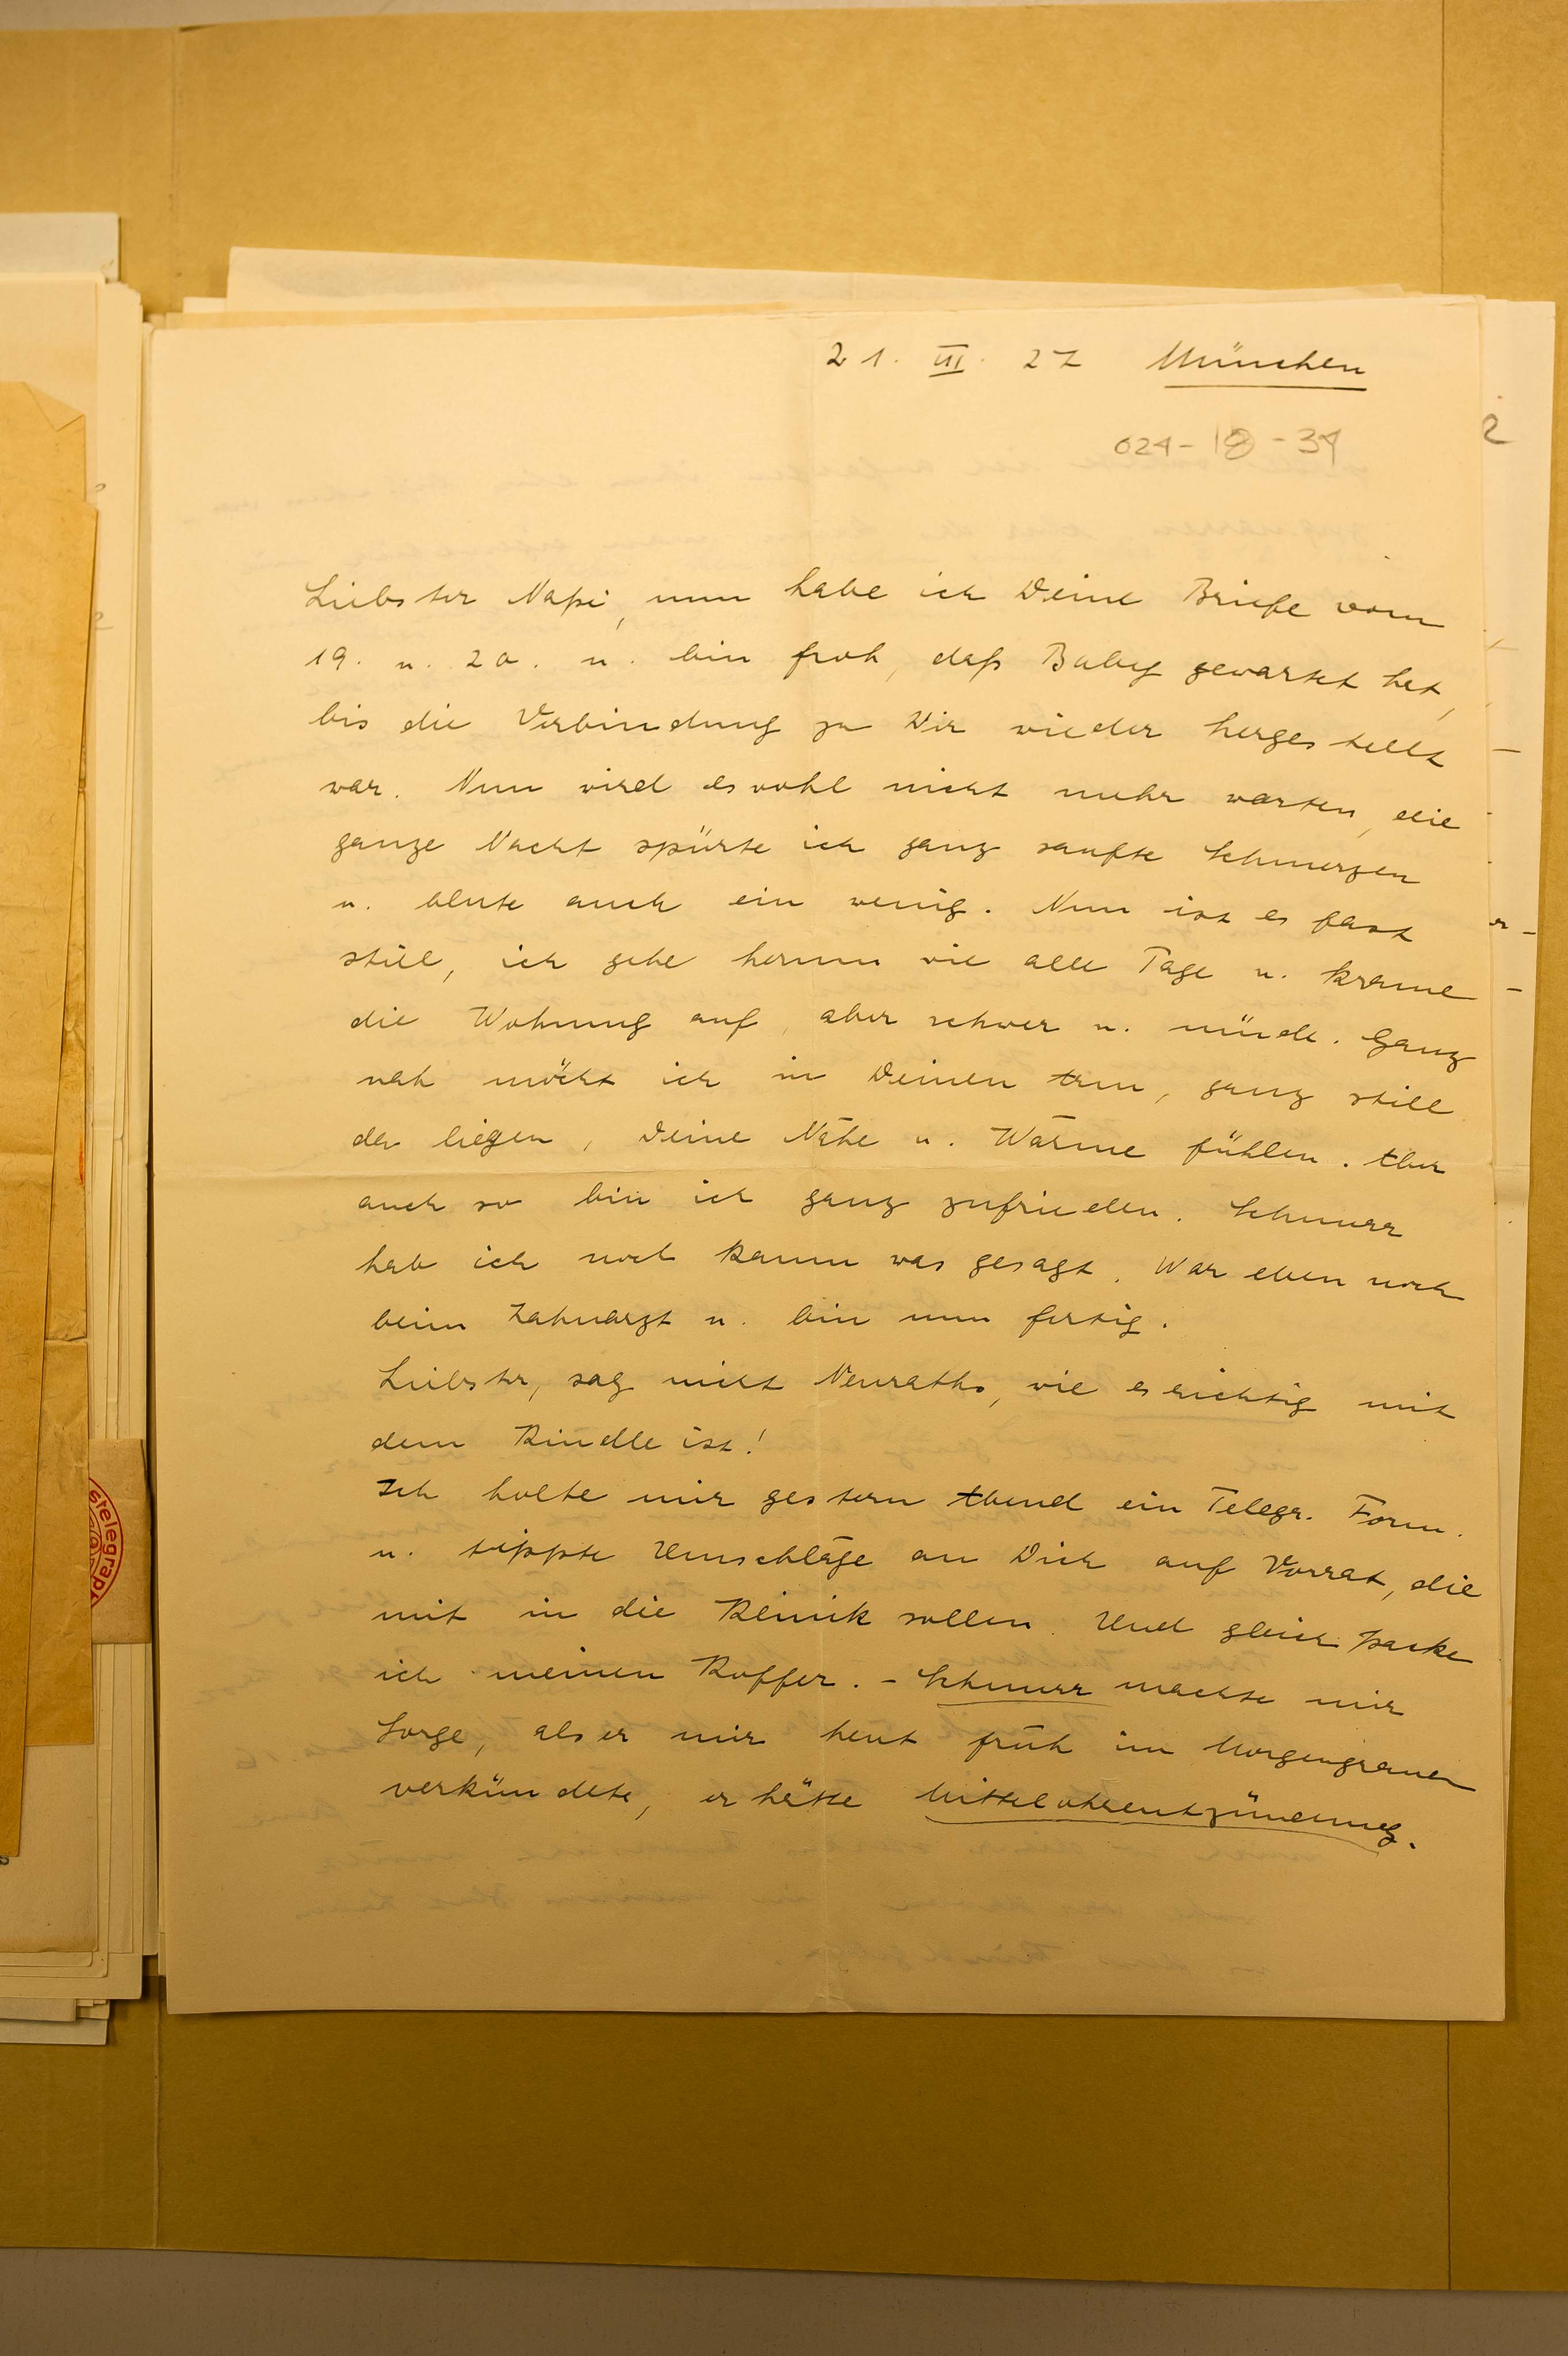 21. III. 27 München
024-18-34
2
Liebster Napi, nun habe ich Deine Briefe vom
19. u. 20. u. bin froh, daß Baby gewartet hat,
bis die Verbindung zu Dir wieder hergestellt
war. Nun wird es wohl nicht mehr warten, die
ganze Nacht spürte ich ganz sanfte Schmerzen
u. blute auch ein wenig. Nun ist es fast
still, ich gehe herum wie alle Tage u. krame
die Wohnung auf, aber schwer u. müde. Ganz
nah möcht ich in Deinen Arm, ganz still
da liegen, Deine Nähe u. Wärme fühlen. Aber
auch so bin ich ganz zufrieden. Schnurr
hab ich noch kaum was gesagt. War eben noch
beim Zahnarzt u. bin nun fertig.
Liebster, sag nicht Neuraths, wie es richtig mit
dem Kindle ist!
Ich holte mir gestern Abend ein Telegr. Form.
u. tippte Umschläge an Dich auf Vorrat, die
mit in die Klinik sollen. Und gleich packe
ich meinen Koffer. - Schnurr machte mir
Sorge, als er mir heut früh im Morgengrauen
verkündete, er hätte Mittelohrentzündung.
stelegraph